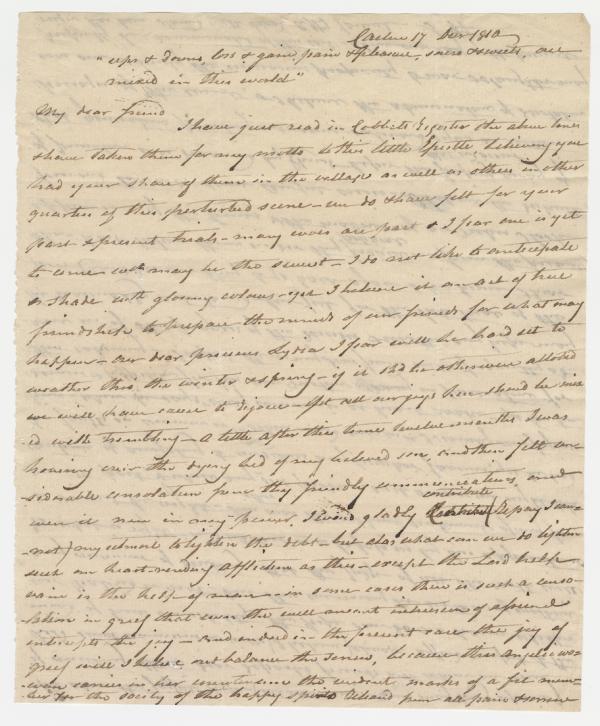 17 Decr 1810
"ups & downs, loss & gain, pain & pleasure, sours & sweets, are
mixed in this world"
My dear friend
I have just read in Cobbets Register the above lines
& have taken them for my motto to this little Epistle believing you
had your share of them in the village as well as others in other
quarters of this perturbed scene - we do & have felt for your
past & present trials - many woes are past & I fear one is yet
to come wch may be the sorest - I do not like to anticipate
& shade with gloomy colours - yet I believe it an act of true
friendship to prepare the minds of our friends for what may
happen - our dear precious Lydia I fear will be hard set to
weather thro the winter & spring - if it shd be otherwise allotted
we will have cause to rejoice - yet all our joys here should be mix
ed with trembling - a little after this time twelve months I was
hovering over the dying bed of my beloved son, and then felt con
siderable consolation from thy friendly communications, and
were it now in my power, I would gladly contribute (Repay I can
not) my utmost to lighten the debt - but alas what can we do to lighten
such an heart-rending affliction as this - except the Lord help
vain is the help of man - in some cases there is such a conso
lation in grief that even the well meant intrusion of a friend
interrupts the joy - and indeed in the present case the joy of
grief will I believe out balance the sorrow, because this angelic wo
man carries in her countenance the evident marks of a fit mem
ber for the society of the happy spirits released from all pain & sorrow